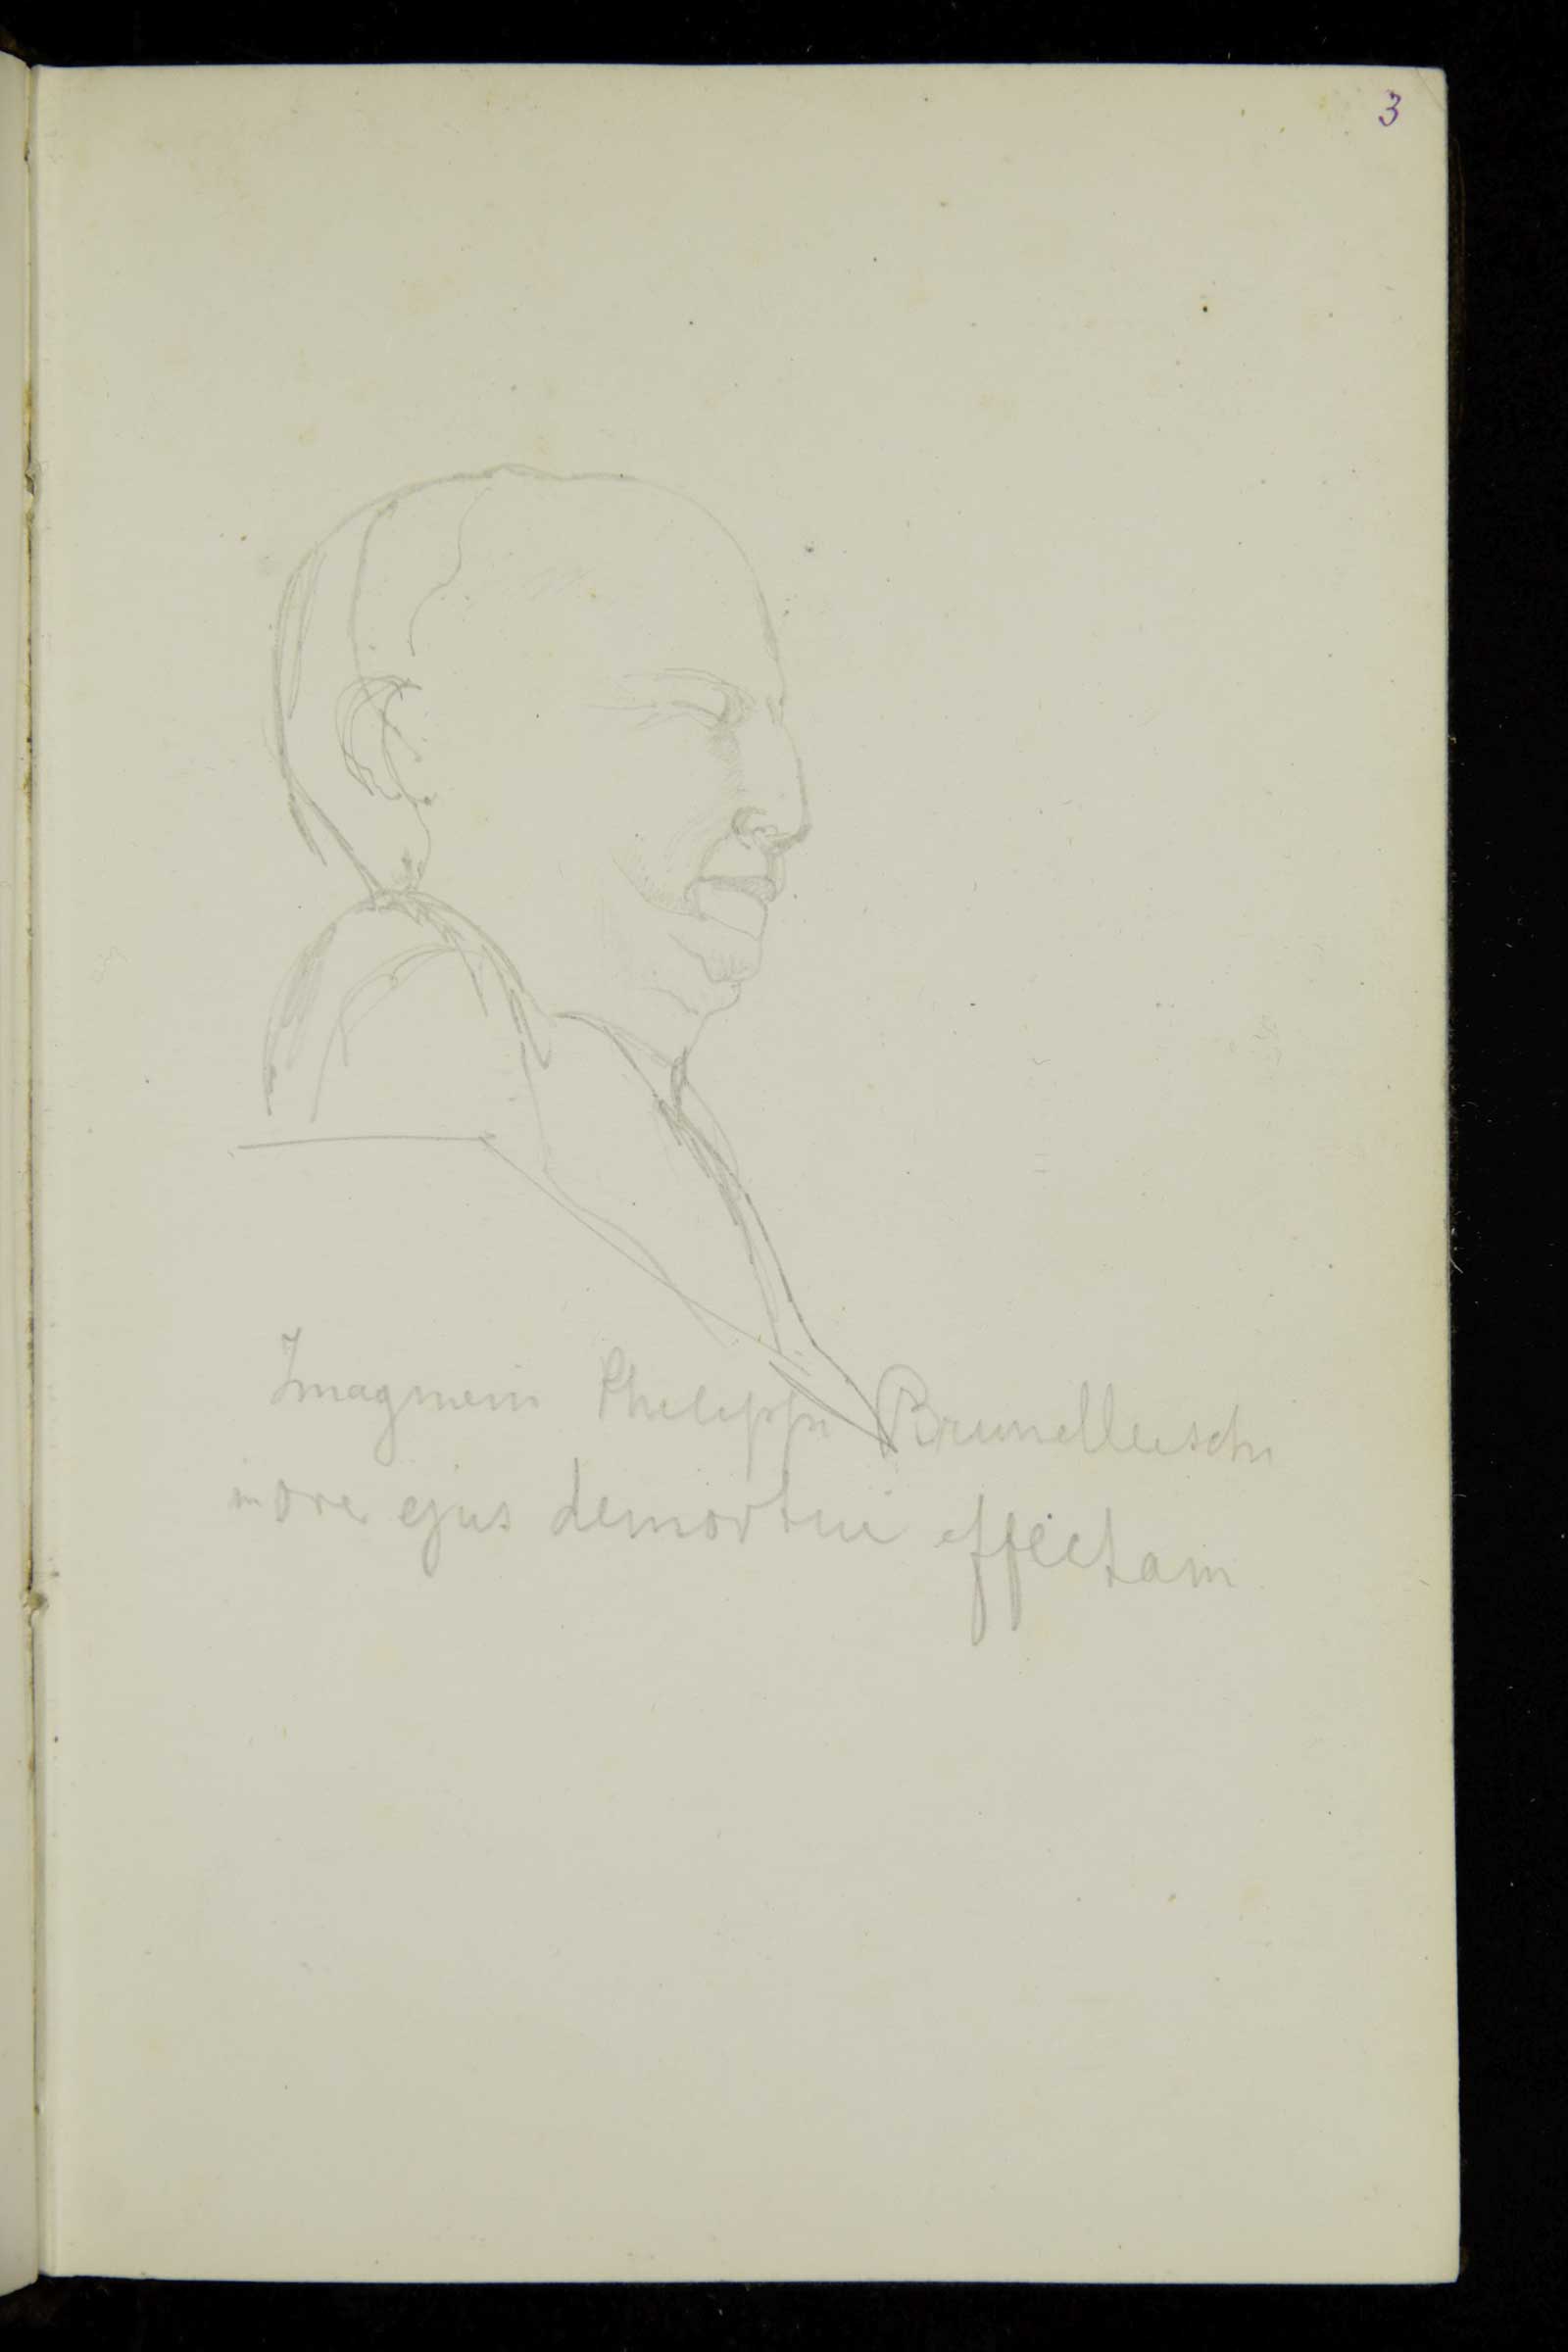 3
Imaginem Philippi Brunelleschi
in ore ejus demortui effectam